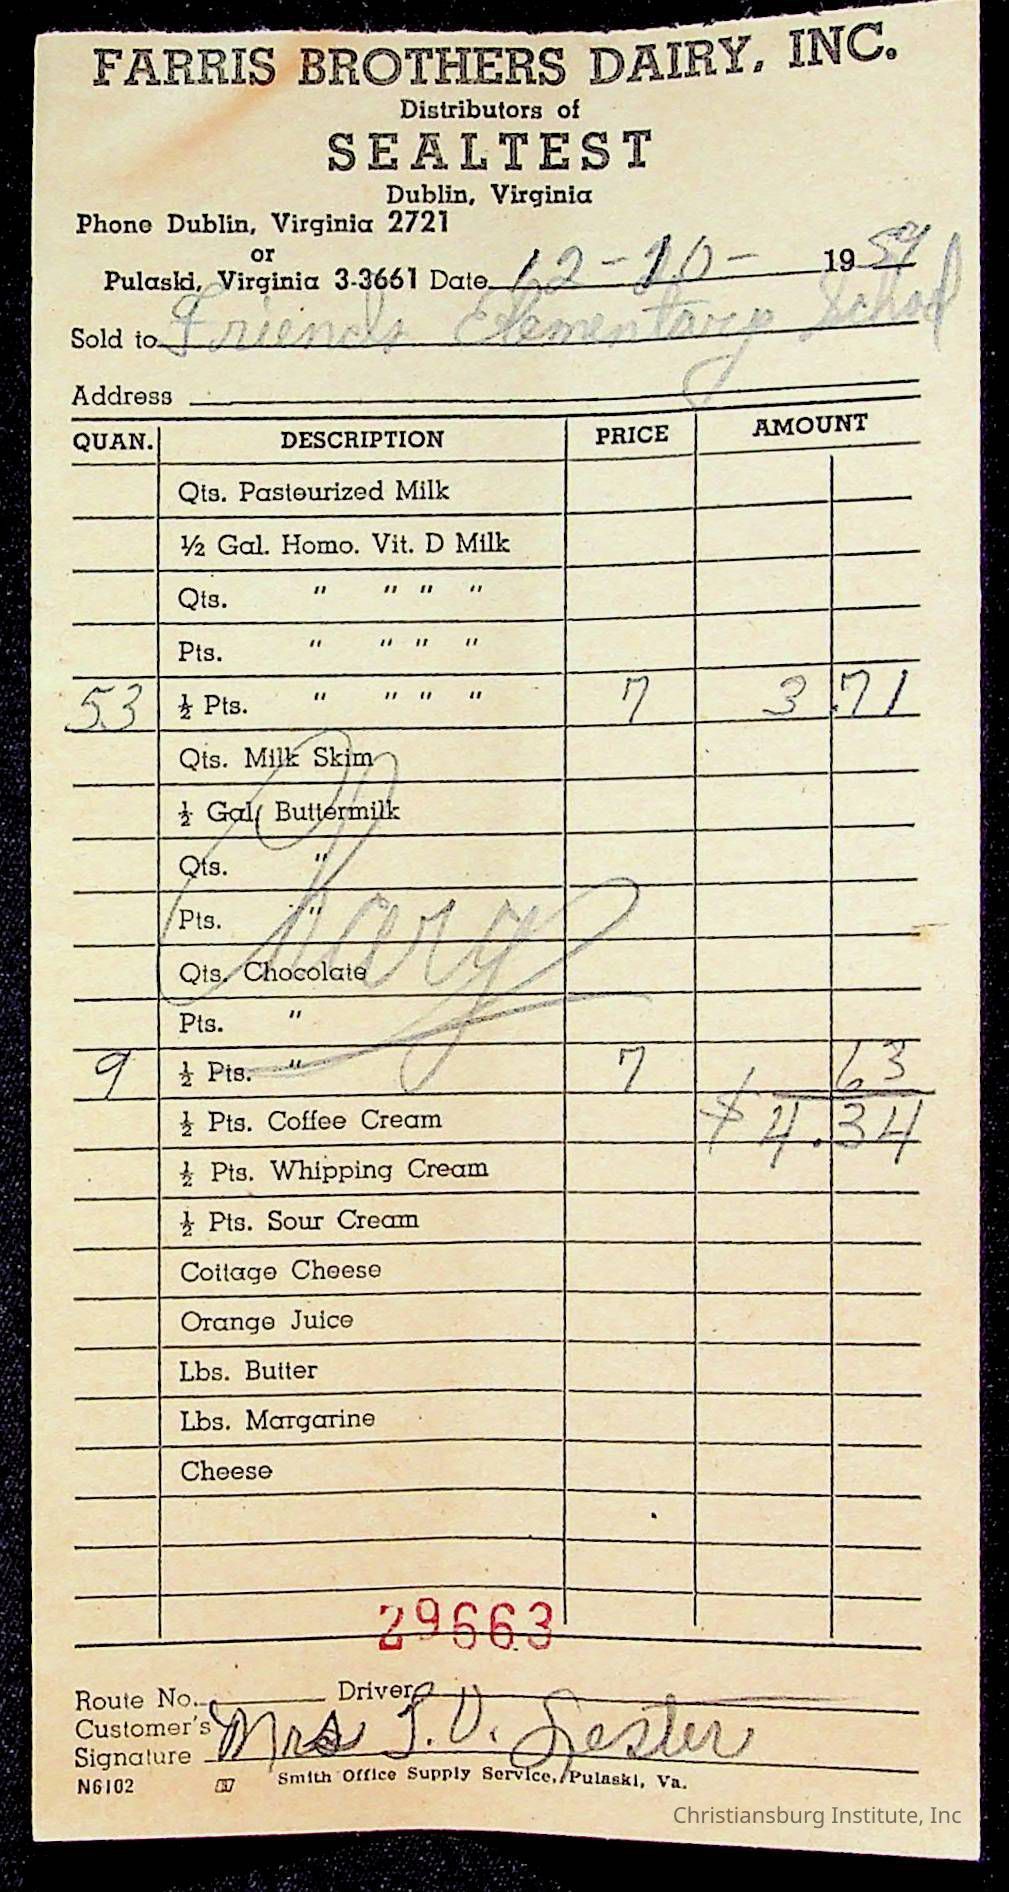 FARRIS BROTHERS DAIRY, INC.
Distributors of
SEALTEST
Dublin, Virginia
Phone Dublin, Virginia 2721
or
Pulaski, Virginia 3-3661 Date 12-10- 1959
Sold to Friends Elementary School
Address
QUAN. DESCRIPTION PRICE AMOUNT
Qts. Pasteurized Milk
½ Gal. Homo. Vit. D Milk
Qts. " " " "
Pts. " " " "
53 ½ Pts. " " " " 7 3.71
Qts. Milk Skim
½ Gal. Buttermilk
Qts. "
Pts. "
Qts. Chocolate
Pts. "
9 ½ Pts. " 7 63
½ Pts. Coffee Cream $4.34
½ Pts. Whipping Cream
½ Pts. Sour Cream
Cottage Cheese
Orange Juice
Lbs. Butter
Lbs. Margarine
Cheese
29663
Route No. Driver
Customer's
Signature Mrs L.V. Lester
N6102 Smith Office Supply Service, Pulaski, Va.
Christiansburg Institute, Inc